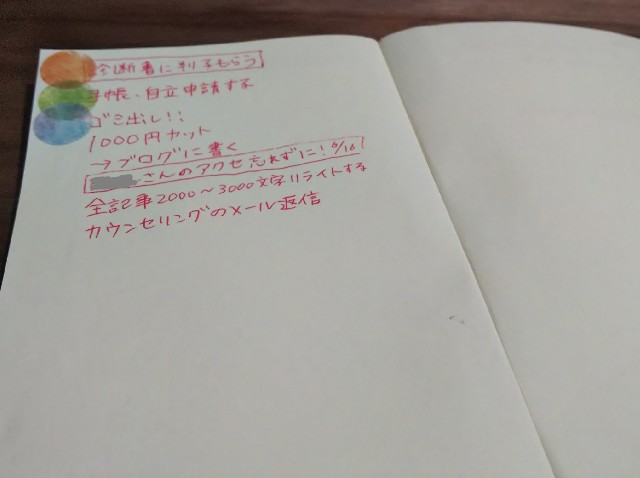 診断書に判子もらう
手帳、自立申請する
ゴミ出し!!
1000円カット
→ブログに書く
さんのアクセ忘れずに! 6/16
全記事2000～3000文字リライトする
カウンセリングのメール返信